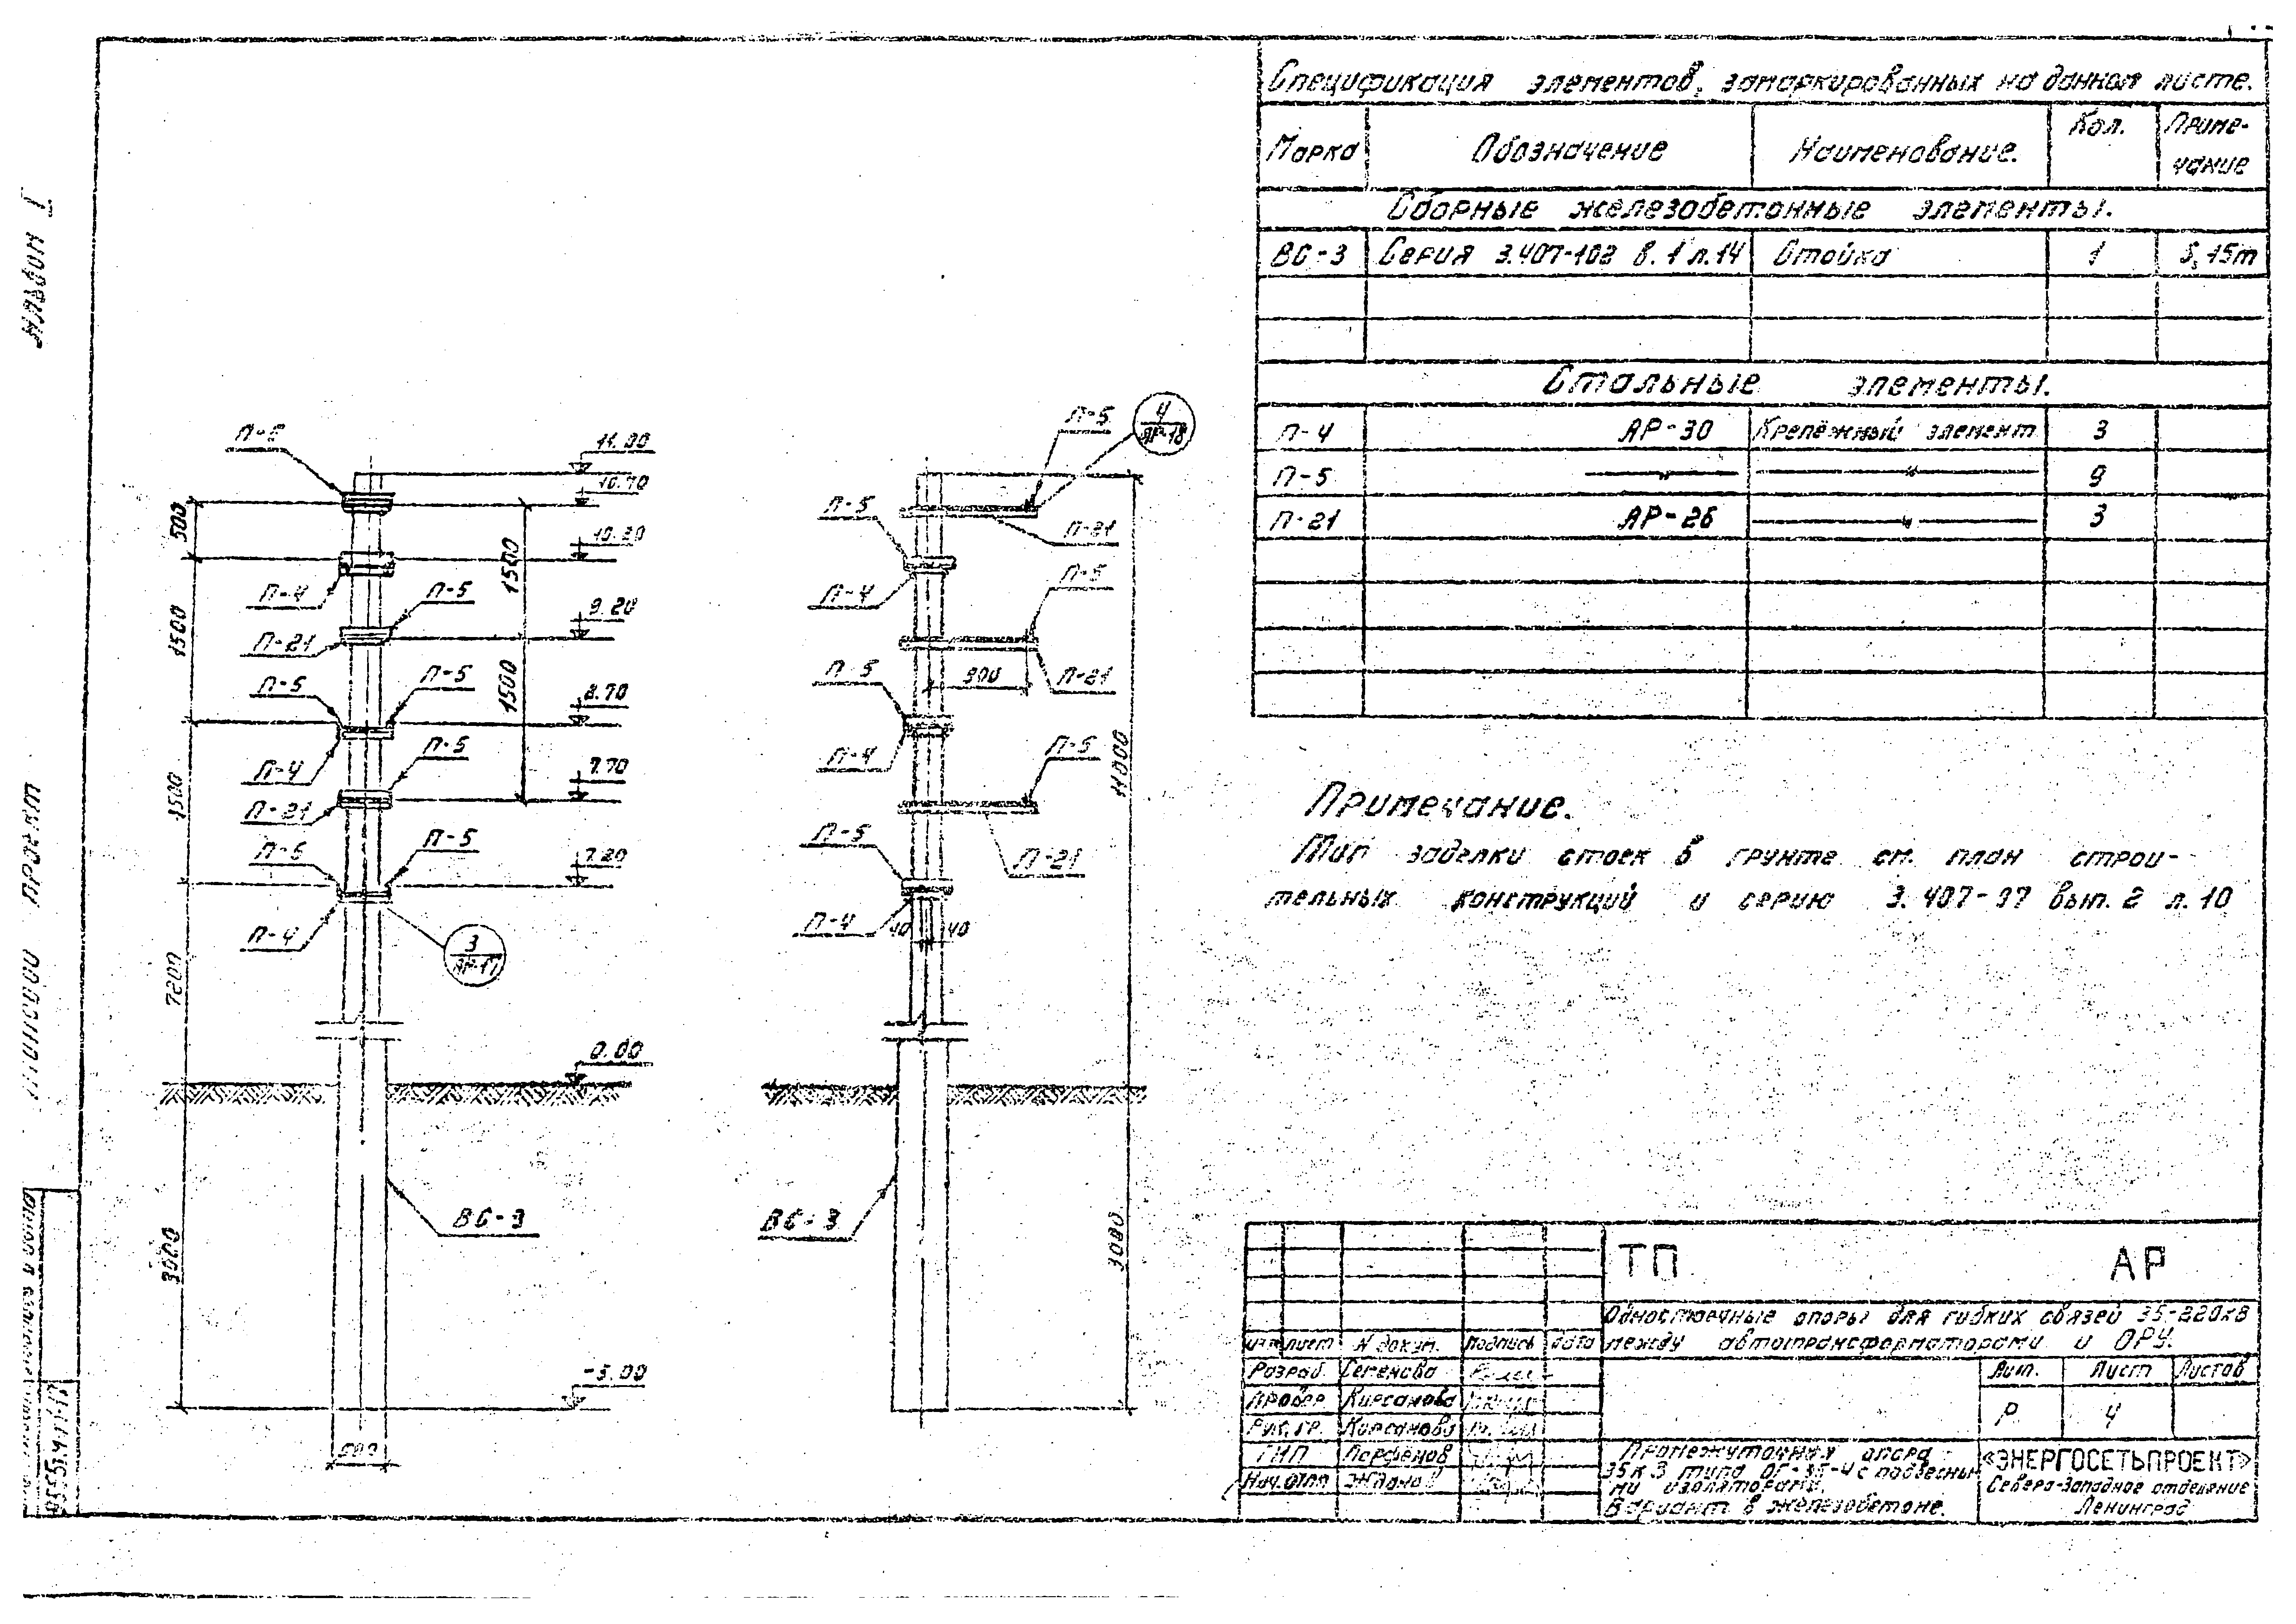 Альбом I
Типовой проект
Спецификация элементов, замаркированных на данном листе.
Марка Обозначение Наименование. Кол. Приме-
чание
Сборные железобетонные элементы.
ВС-3 Серия 3.407-102 в.1 л.14 Стойка 1 15т
Стальные элементы.
П-4 АР-30 Крепёжный элемент 3
П-5 —"— —"— 9
П-21 АР-26 —"— 3
Примечание.
Тип заделки стоек в грунте см. план строи-
тельных конструкций и серию 3.407-97 вып. 2 л. 10
П-5
11.00
10.70
500
10.20
П-4
П-5
1500
9.20
1500
П-21
П-5
П-5
1500
8.70
П-4
П-5
1500
7.70
П-21
П-5
П-5
7.20
П-4
3
АР-17
7200
0.00
ВС-3
3000
-3.00
П-5
4
АР-18
П-5
П-21
П-4
П-5
П-5
900
П-21
П-4
П-5
11000
П-5
П-21
П-4
40 40
ВС-3
3000
ТП АР
Одностоечные опоры для гибких связей 35-220кВ
между автотрансформаторами и ОРУ.
изм лист N докум. Подпись дата
Разраб. Семенова
Провер Кирсанова
Рук. гр. Кирсанова
ГИП Парфенов
Нач. отп
Лит. Лист Листов
Р 4
Промежуточная опора
35кВ типа ОГ-35-4 с подвесны-
ми изоляторами.
Вариант в железобетоне.
«ЭНЕРГОСЕТЬПРОЕКТ»
Северо-Западное отделение
Ленинград